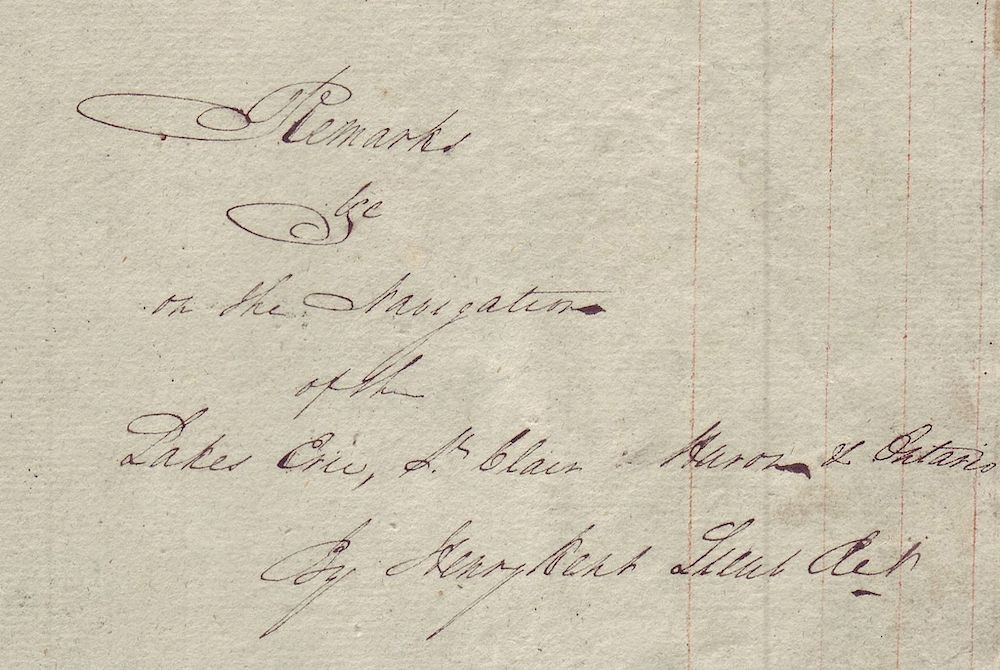 Remarks
&c
on the Navigation
of the
Lakes Erie, St. Clair Huron & Ontario
By Henry Kent Lieut